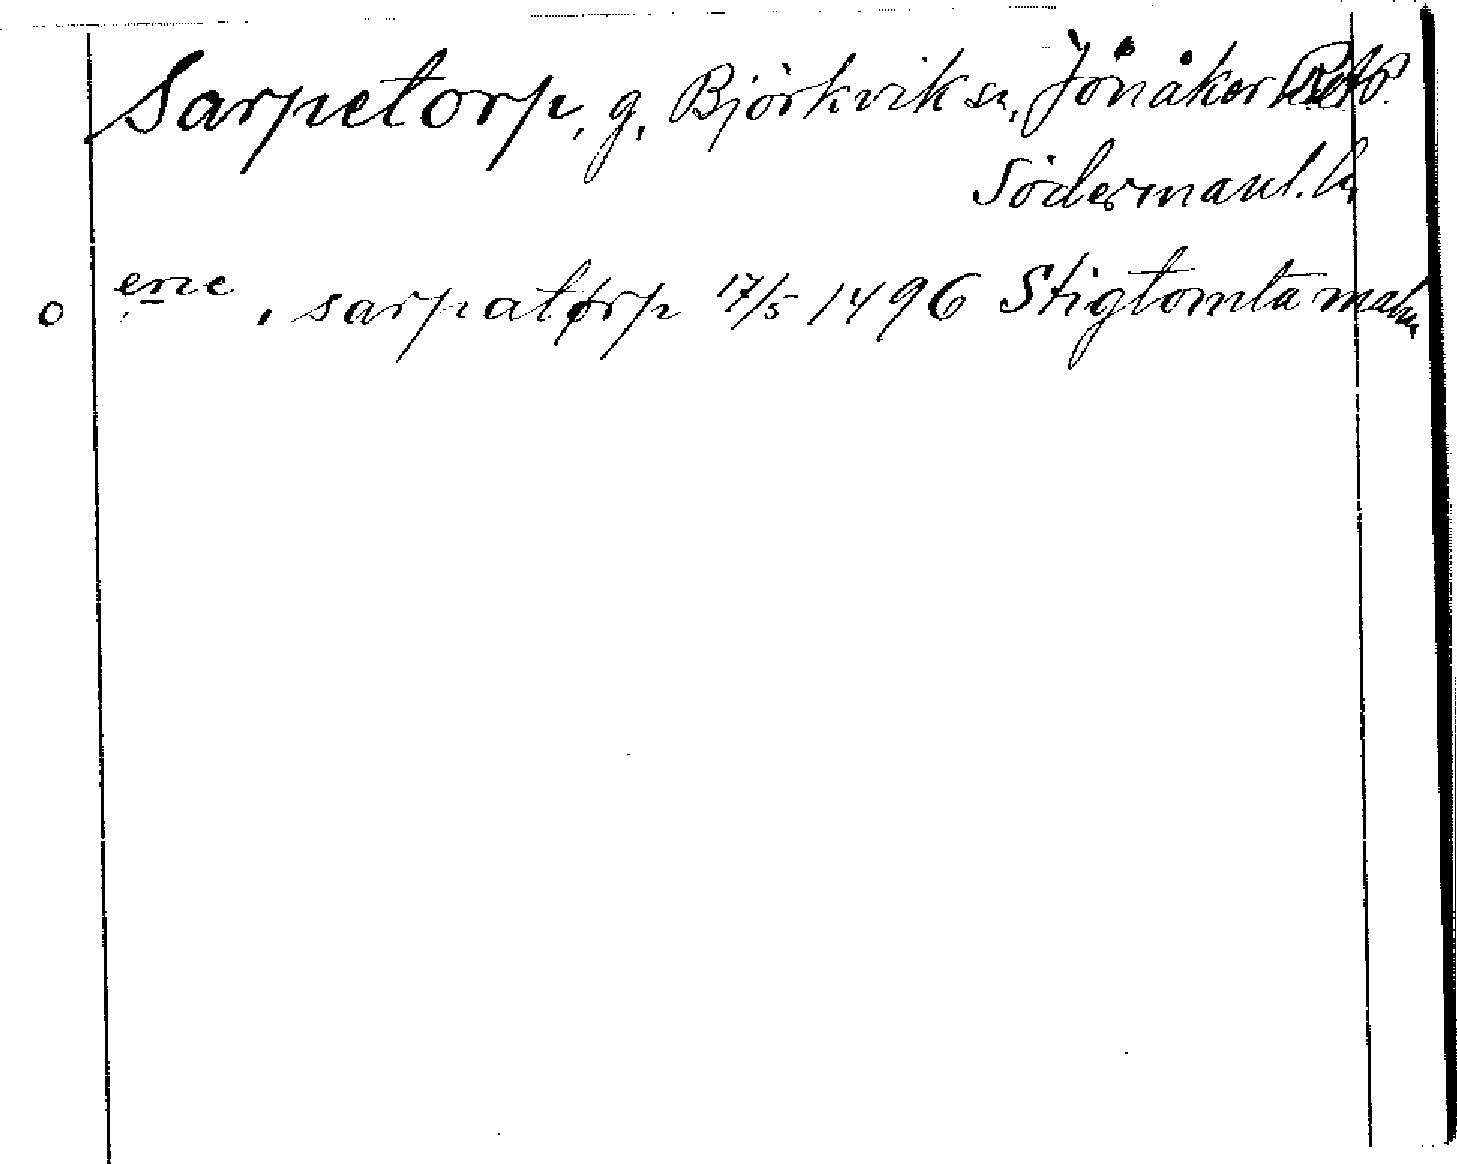 Sarpetorp, g, Björkvik sn, Jönåker
Södermanl. l.
o ene, sarpatorp 17/5 1496 Stigtomta malm